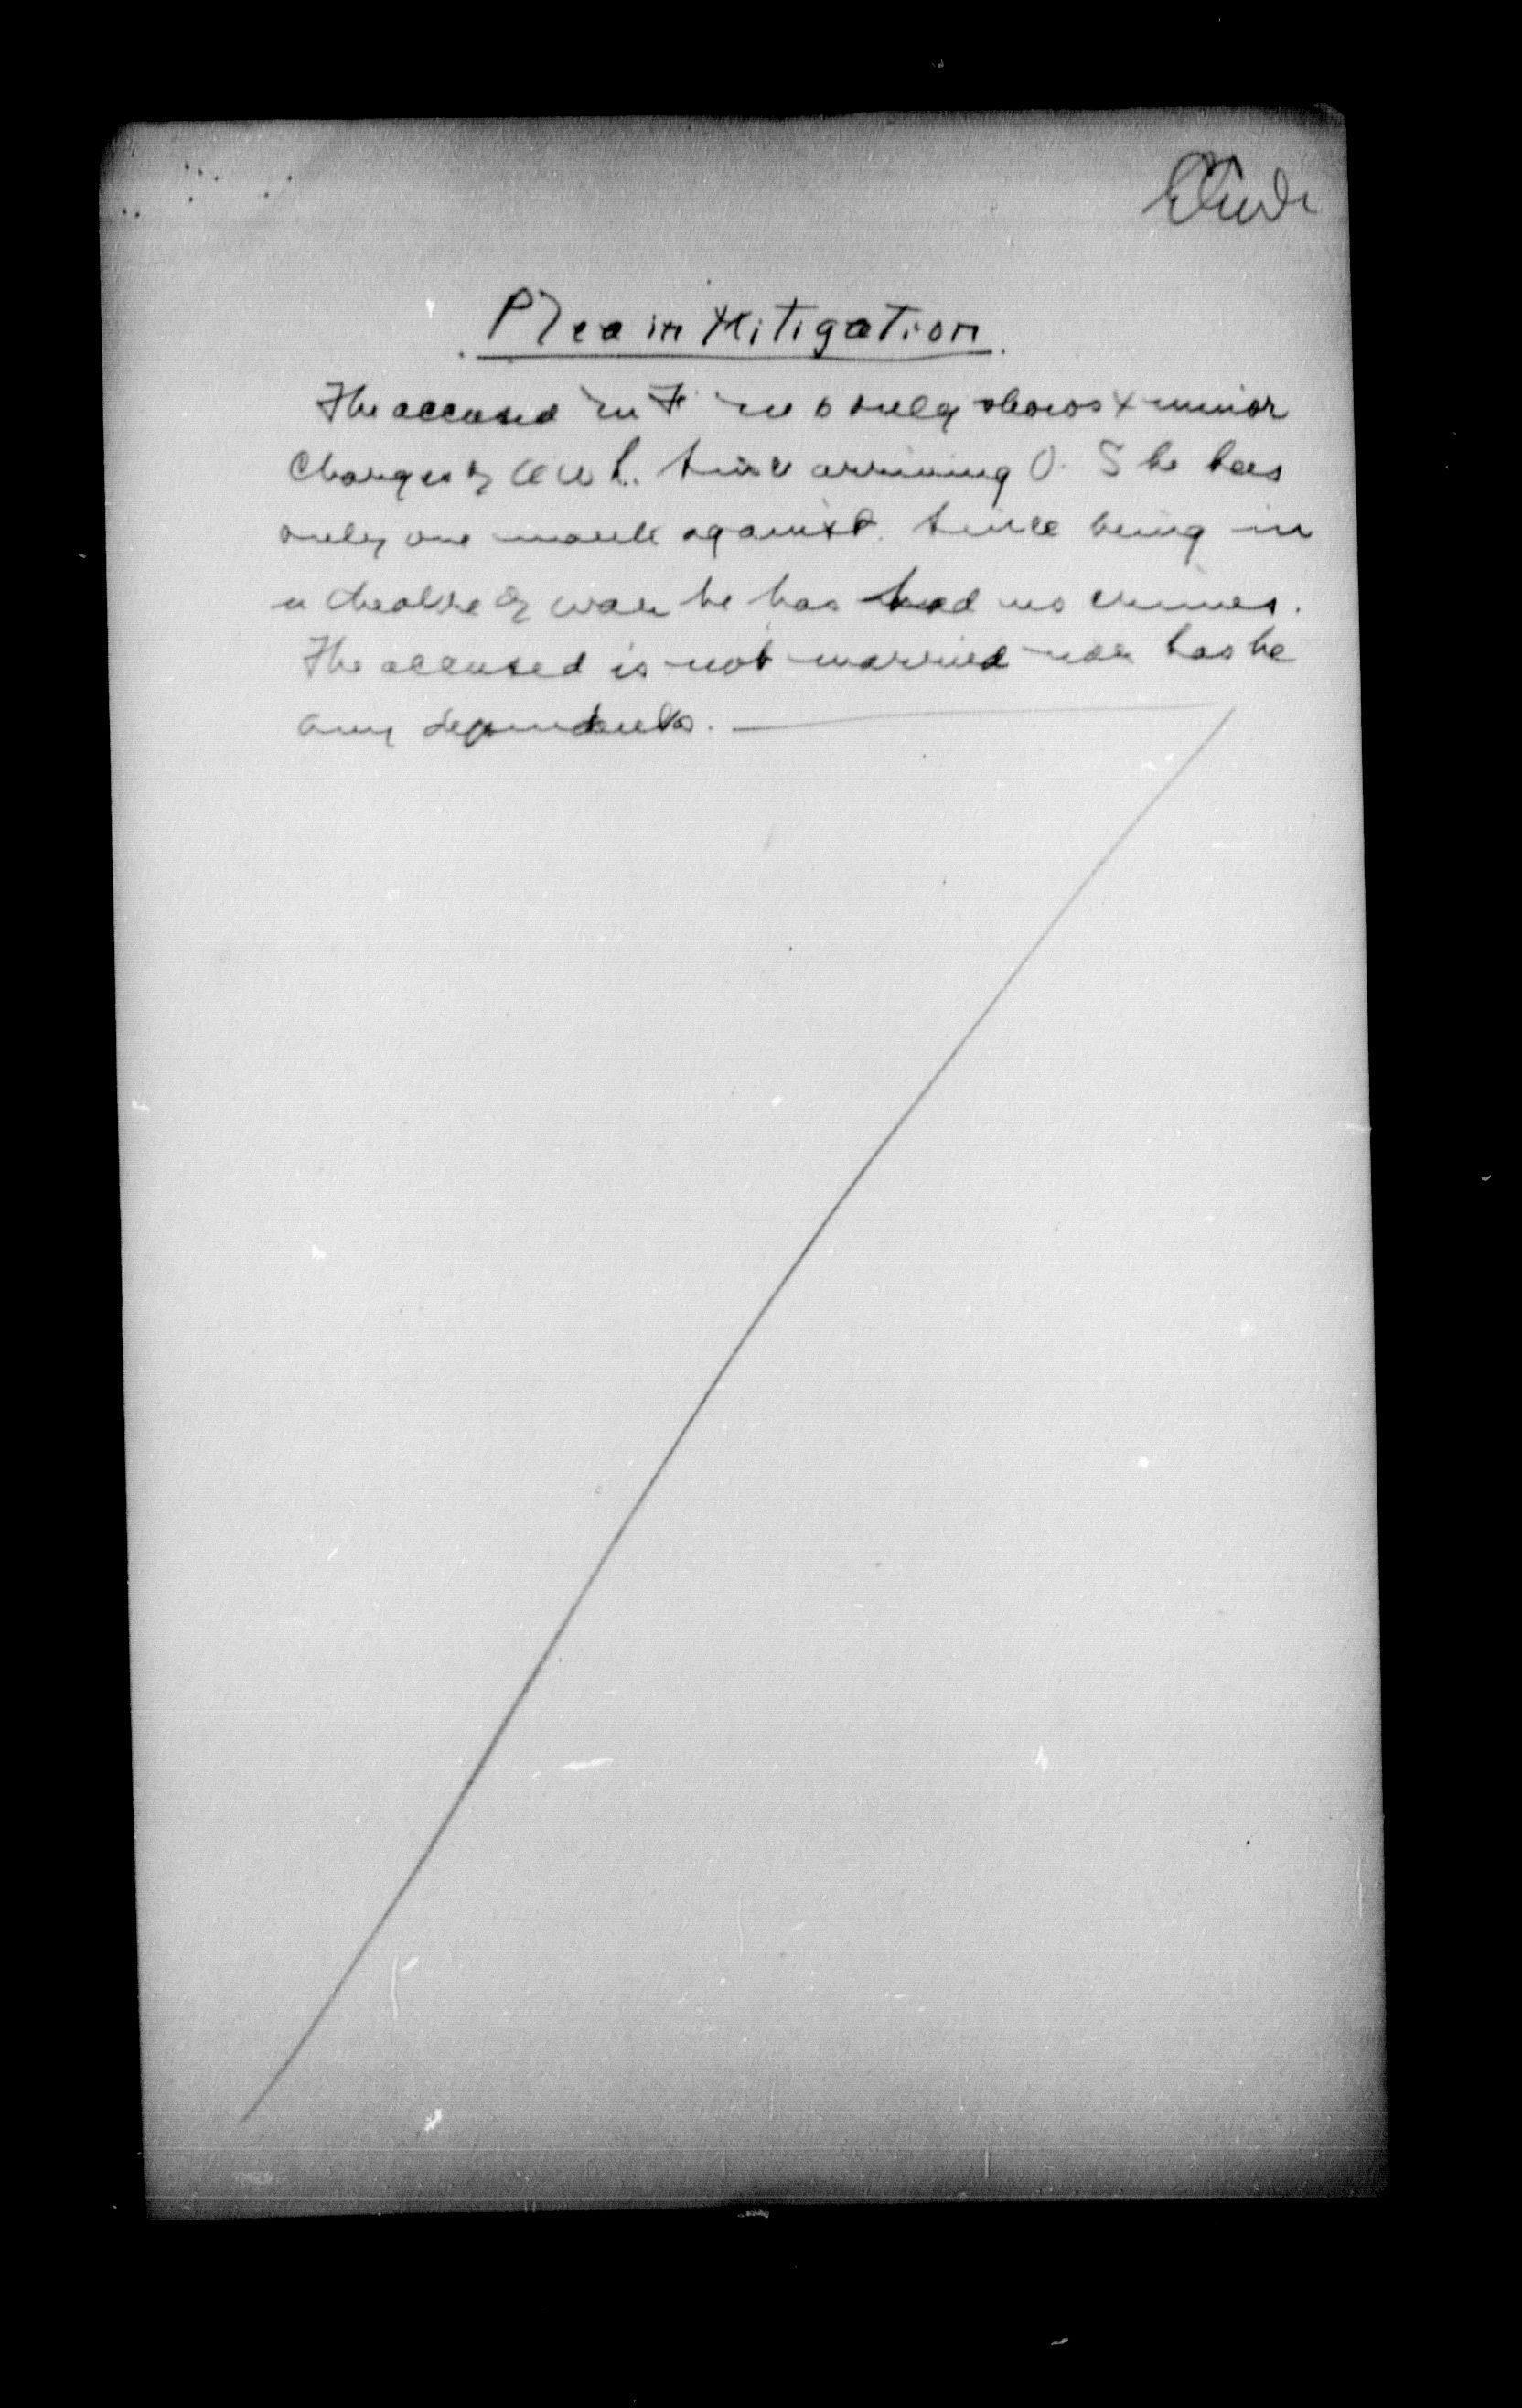 Plea in Mitigation
The accused in 7 mo only shows 4 minor
charges of AWL. Since arriving O. S he has
only one mark against. Since being in
a theatre of war he has had no crimes.
The accused is not married nor has he
any dependents.